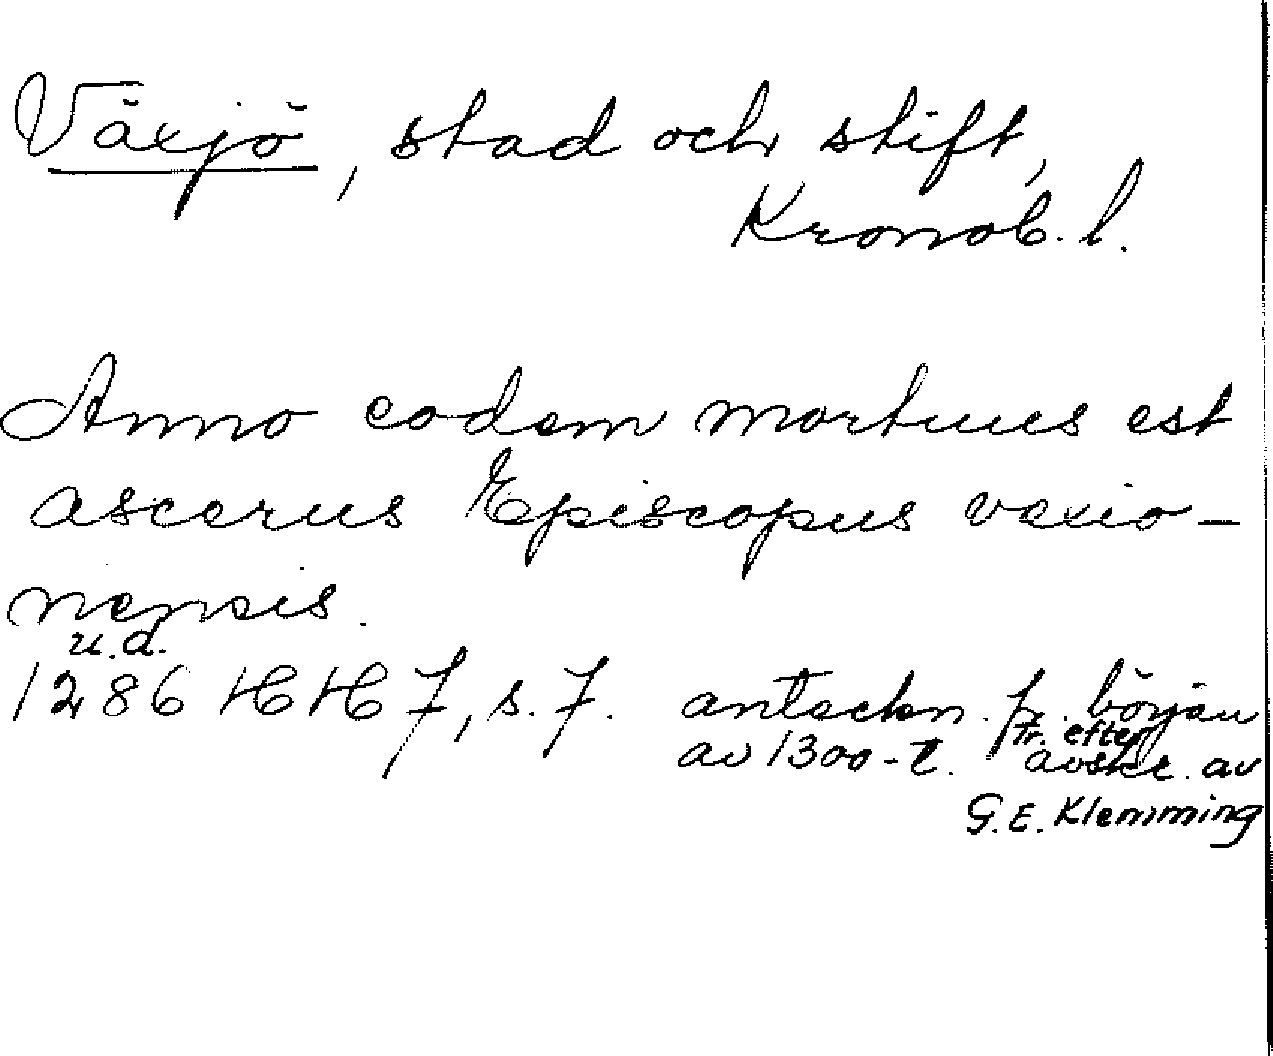 Växjö, stad och stift,
Kronob. l.
Anno eodem mortuus est
ascerus Episcopus vexio-
nensis.
u.d.
1286 HH 7, s. 7. anteckn. fr. början
av 1300-t. Tr. efter
avskr. av
G.E. Klemming